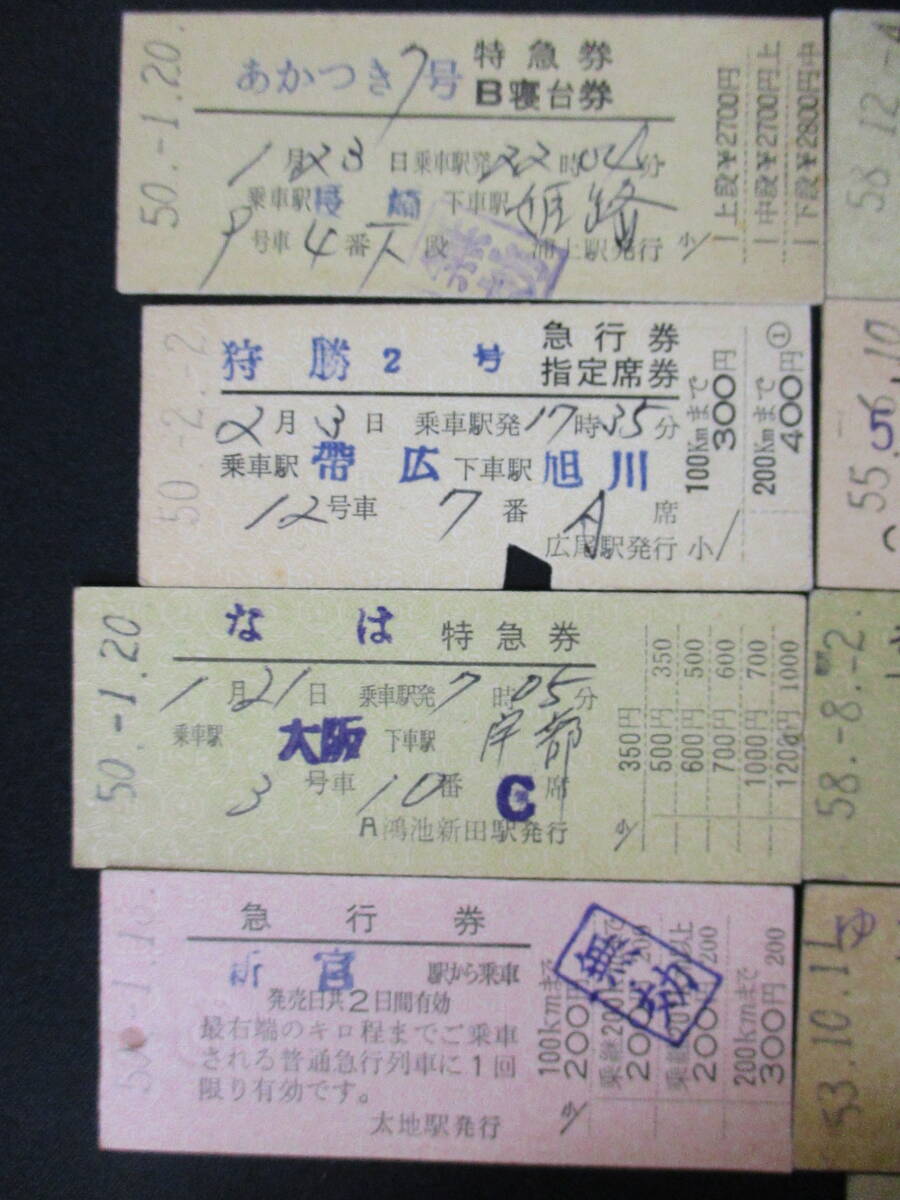 50.-1.20.
あかつき7号
特急券
B寝台券
1月23日乗車駅発22時04分
乗車駅長崎 下車駅姫路
9号車4番下段 浦上駅発行 小
上段¥2700円上
中段¥2700円上
下段¥2800円中
50.-2.-2
狩勝2号
急行券
指定席券
2月3日 乗車駅発17時35分
乗車駅 帯広 下車駅 旭川
12号車 7番 A席
広尾駅発行 小
100Kmまで
300円
200Kmまで
400円
①
50.-1.20
なは 特急券
1月21日 乗車駅発7時05分
乗車駅 大阪 下車駅 宇部
3号車 10番 C席
A鴻池新田駅発行
小
350円 350
500円 500
600円 600
700円 700
1000円 1000
急行券
新宮 駅から乗車
発売日共2日間有効
最右端のキロ程までご乗車
される普通急行列車に1回
限り有効です。
太地駅発行
小
100kmまで
200円
200kmまで
300円 200
無効
58-12.-4
55.-6.10
58.-8.-2.
53.10.11